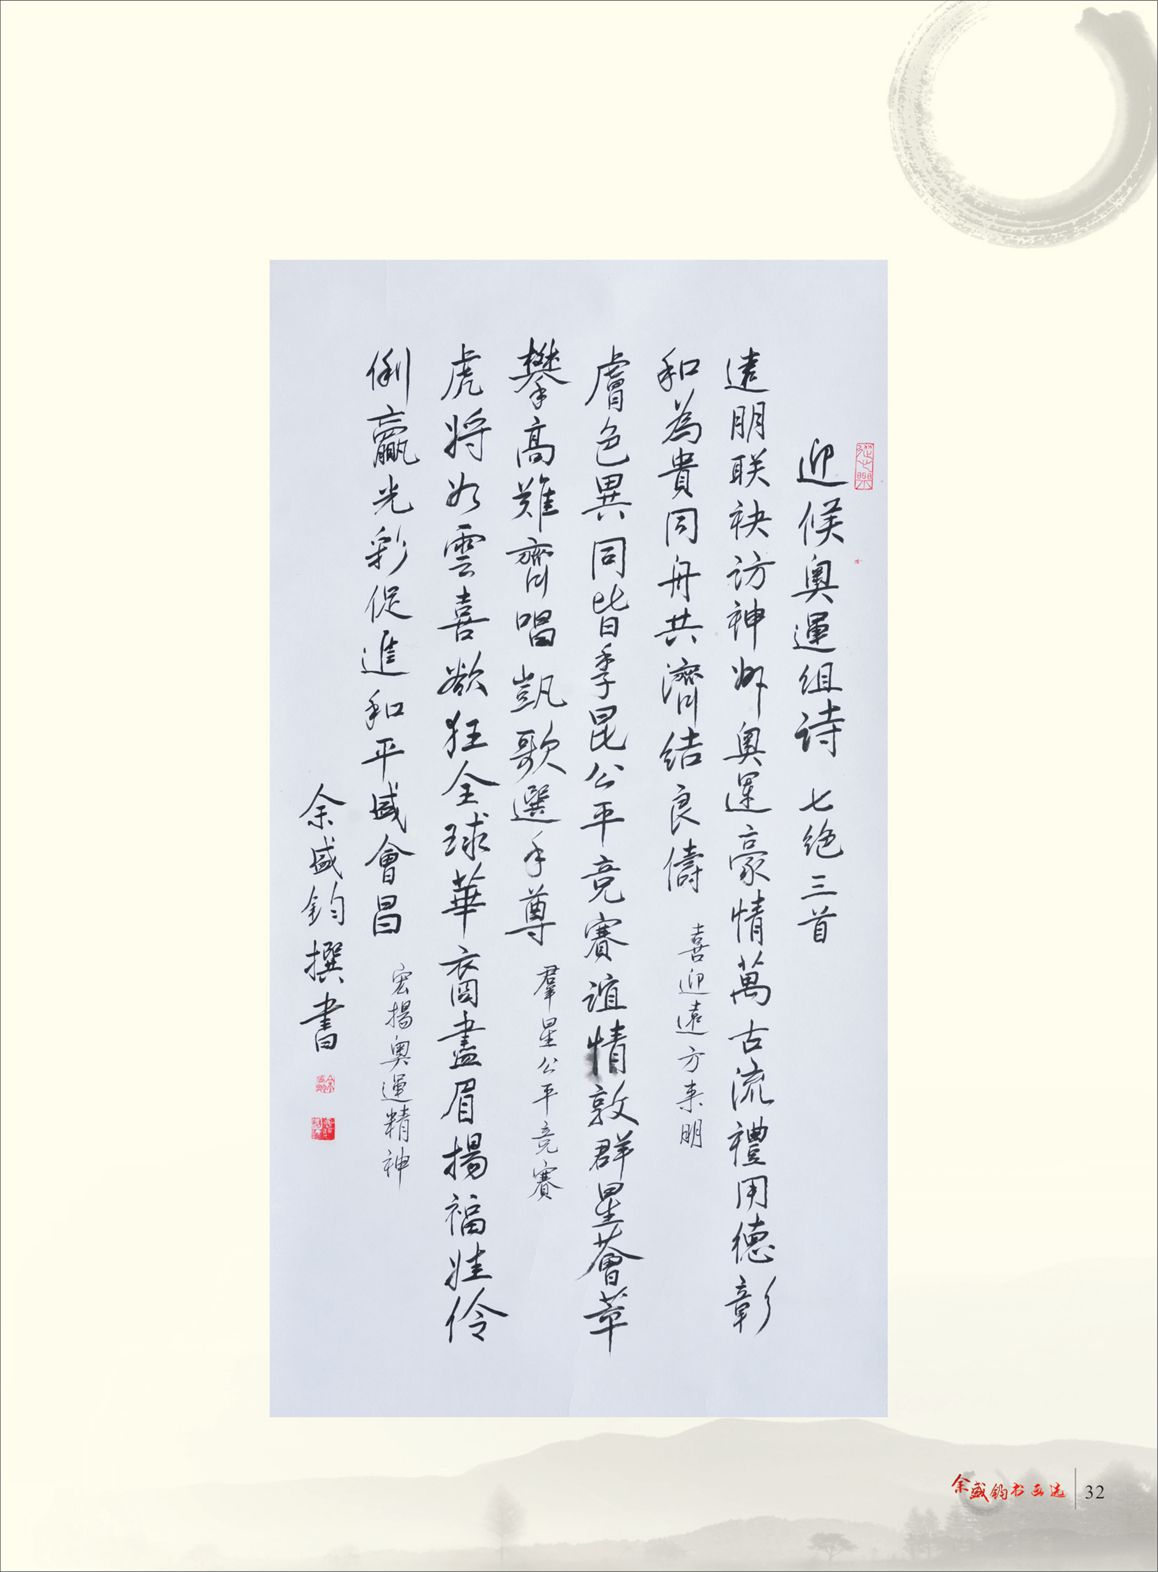 迎候奧運组诗 七绝三首
遠朋联袂访神州奧運豪情萬古流禮用德彰
和為貴同舟共濟结良儔 喜迎遠方来朋
膚色異同皆季昆公平竞賽谊情敦群星薈萃
攀高難齊唱凱歌選手尊 羣星公平竞賽
虎将如雲喜欲狂全球華裔盡眉揚福娃伶
俐贏光彩促進和平盛會昌 宏揚奧運精神
余盛鈞撰書
余盛钧书画选 32